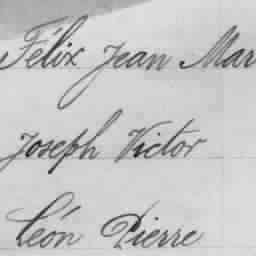 Félix Jean Mar
Joseph Victor
Léon Pierre